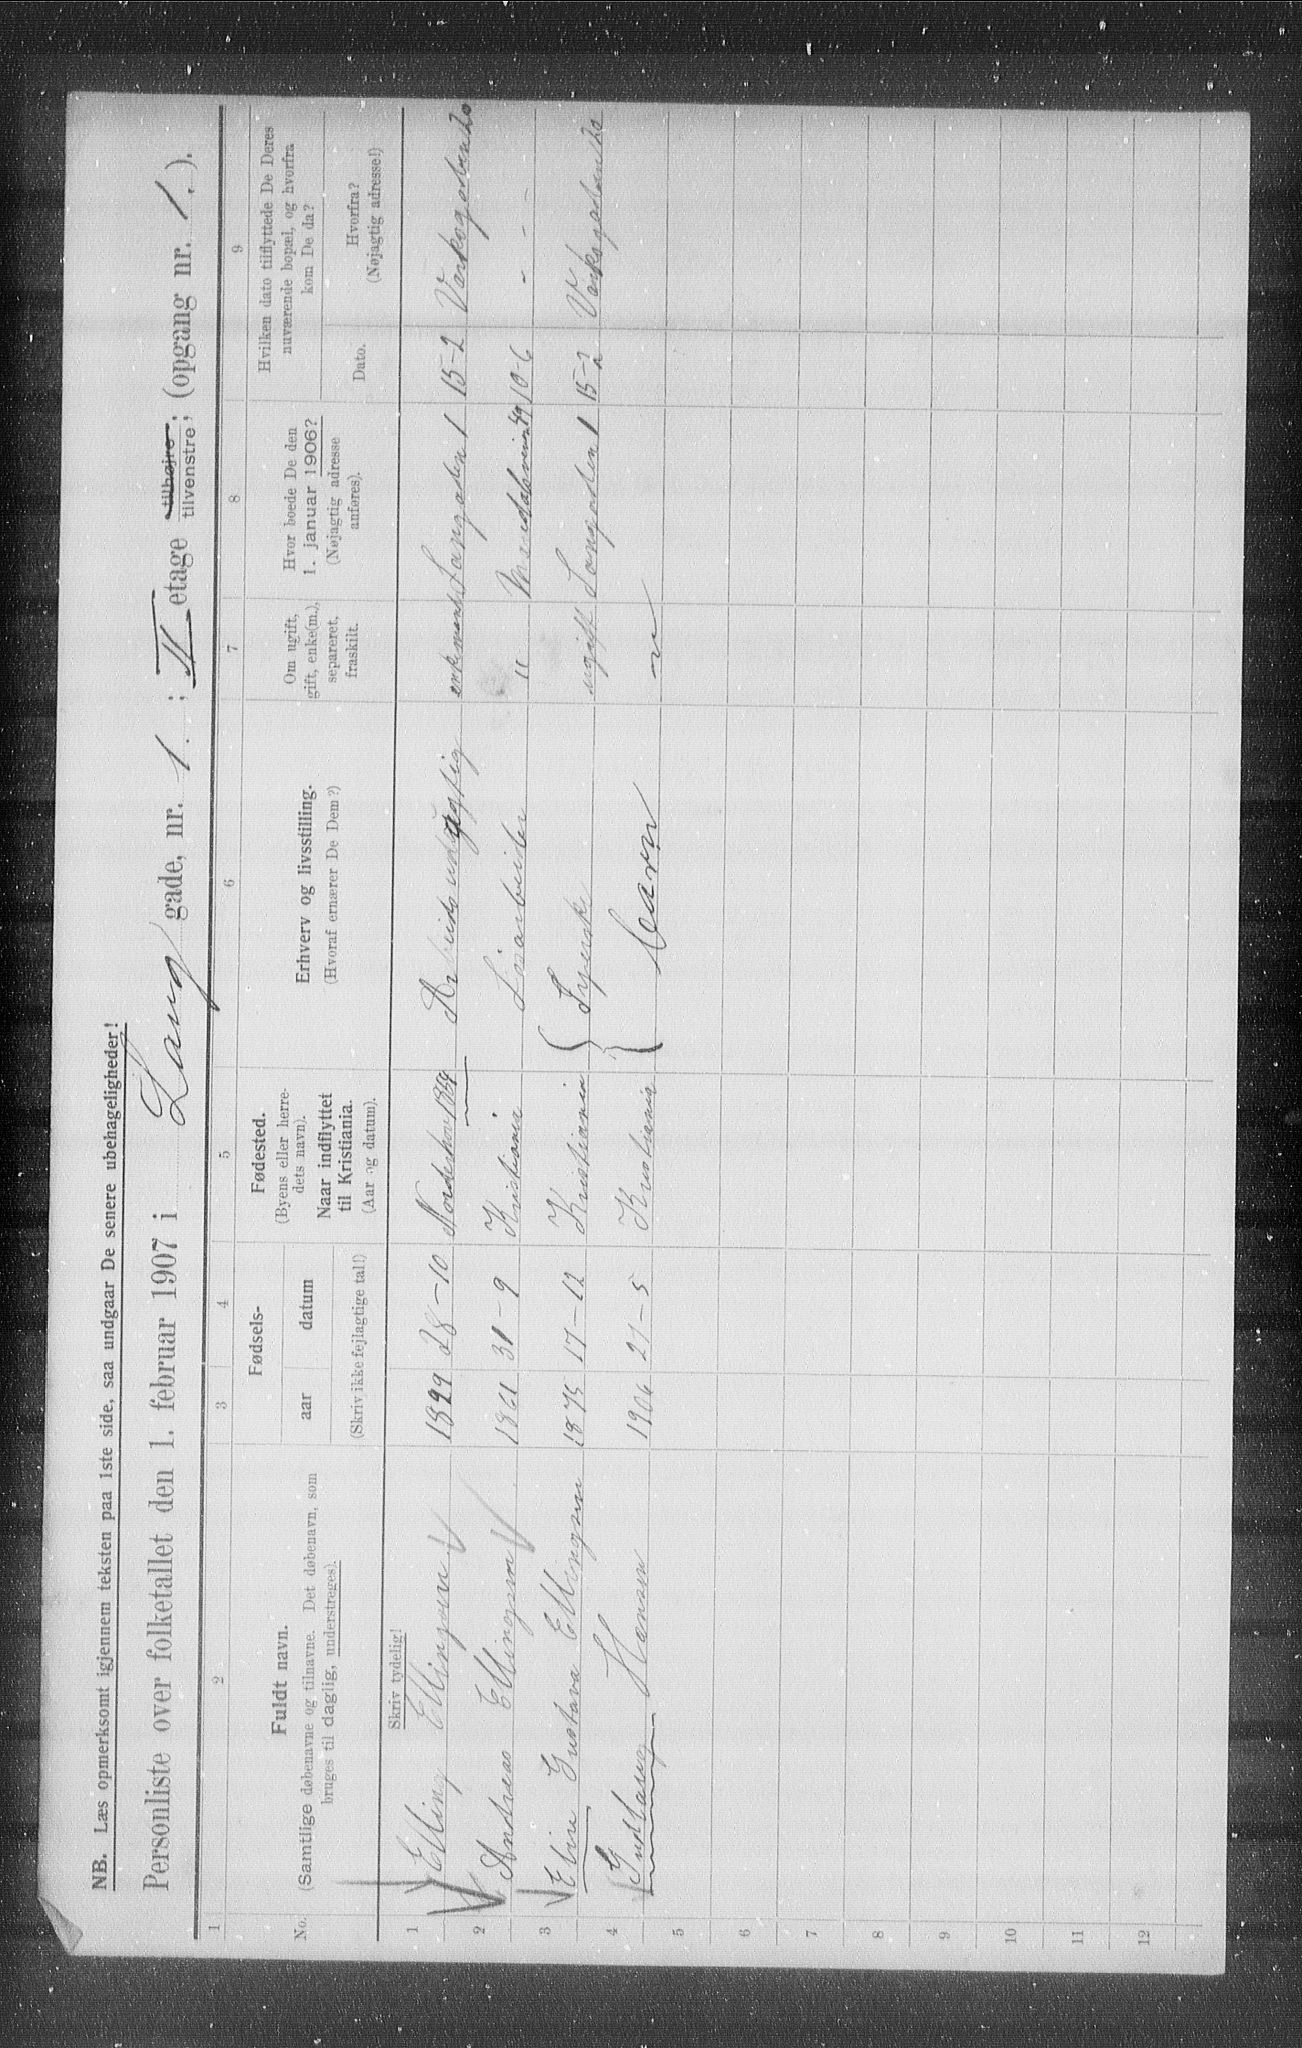 NB. Læs opmerksomt igjennem teksten paa 1ste side, saa undgaar De senere ubehageligheder!
Personliste over folketallet den 1. februar 1907 i Lang gade, nr. 1. ; II etage tilhøjre ; tilvenstre ; (opgang nr. 1. ).
1 2 3 4 5 6 7 8 9
No.
Fuldt navn.
(Samtlige døbenavne og tilnavne. Det døbenavn, som
bruges til daglig, understreges).
Fødsels-
aar datum
(Skriv ikke fejlagtige tal!)
Fødested.
(Byens eller herre-
dets navn).
Naar indflyttet
til Kristiania.
(Aar og datum).
Erhverv og livsstilling.
(Hvoraf ernærer De Dem?)
Om ugift,
gift, enke(m.),
separeret,
fraskilt.
Hvor boede De den
1. januar 1906?
(Nøjagtig adresse
anføres).
Hvilken dato tilflyttede De Deres
nuværende bopæl, og hvorfra
kom De da?
Dato.
Hvorfra?
(Nøjagtig adresse!)
Skriv tydelig!
1 Elling Ellingsen 1829 28-10 Norderhov Arbeidsudygtig enkemand Langaden 1 15-2 Værksgaden 20
2 Andreas Ellingsen 1861 31-9 Kristiania " 10-6 - - -
3 Eline Gustava Ellingsen 1875 17-12 Kristiania } Syerske ugift Langaden 1 15-2 Værksgaden 20
4 Gudlaug Hansen 1906 21-5 Kristiania { Barn "
5
6
7
8
9
10
11
12